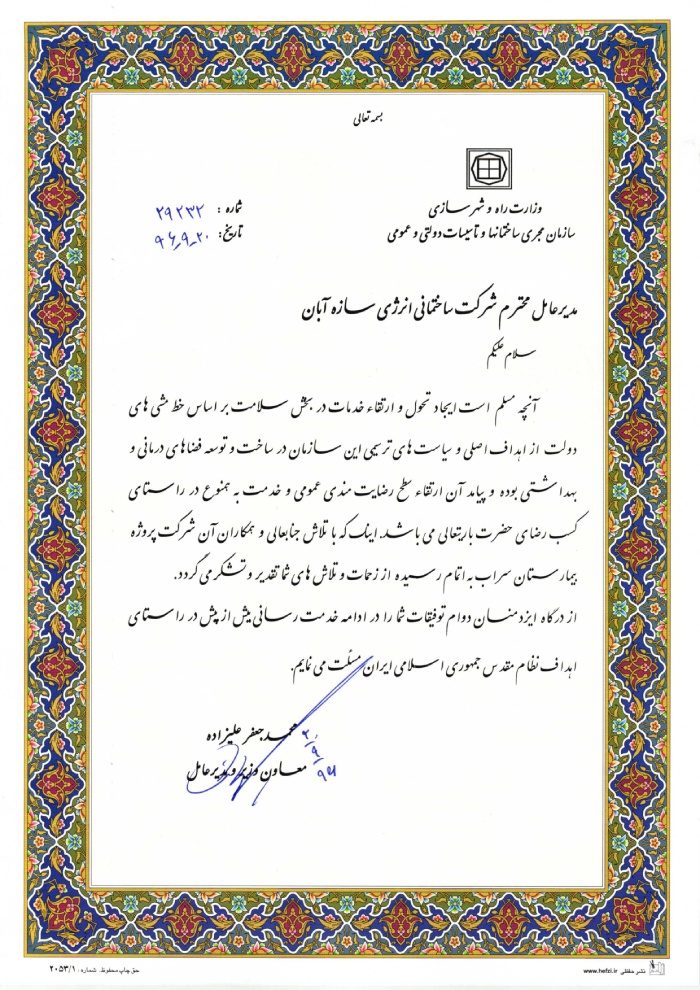 بسمه تعالی
وزارت راه و شهرسازی
سازمان مجری ساختمانها و تأسیسات دولتی و عمومی
شماره : ۲۹۲۳۲
تاریخ: ۹۶_۹_۲۰
مدیرعامل محترم شرکت ساختمانی انرژی سازه آبان
سلام علیکم
آنچه مسلم است ایجاد تحول و ارتقاء خدمات در بخش سلامت بر اساس خط مشی های
دولت از اهداف اصلی و سیاست های ترسیمی این سازمان در ساخت و توسعه فضاهای درمانی و
بهداشتی بوده و پیامد آن ارتقاء سطح رضایت مندی عمومی و خدمت به همنوع در راستای
کسب رضای حضرت باریتعالی می باشد. اینک که با تلاش جنابعالی و همکاران آن شرکت پروژه
بیمارستان سراب به اتمام رسیده از زحمات و تلاش های شما تقدیر و تشکر می گردد.
از درگاه ایزدمنان دوام توفیقات شما را در ادامه خدمت رسانی بیش از پیش در راستای
اهداف نظام مقدس جمهوری اسلامی ایران مسئلت می نمایم.
محمدجعفر علیزاده
معاون وزیر و مدیرعامل
حق چاپ محفوظ. شماره : ۲۰۵۳/۱
www.hefzi.ir نشر حفظی